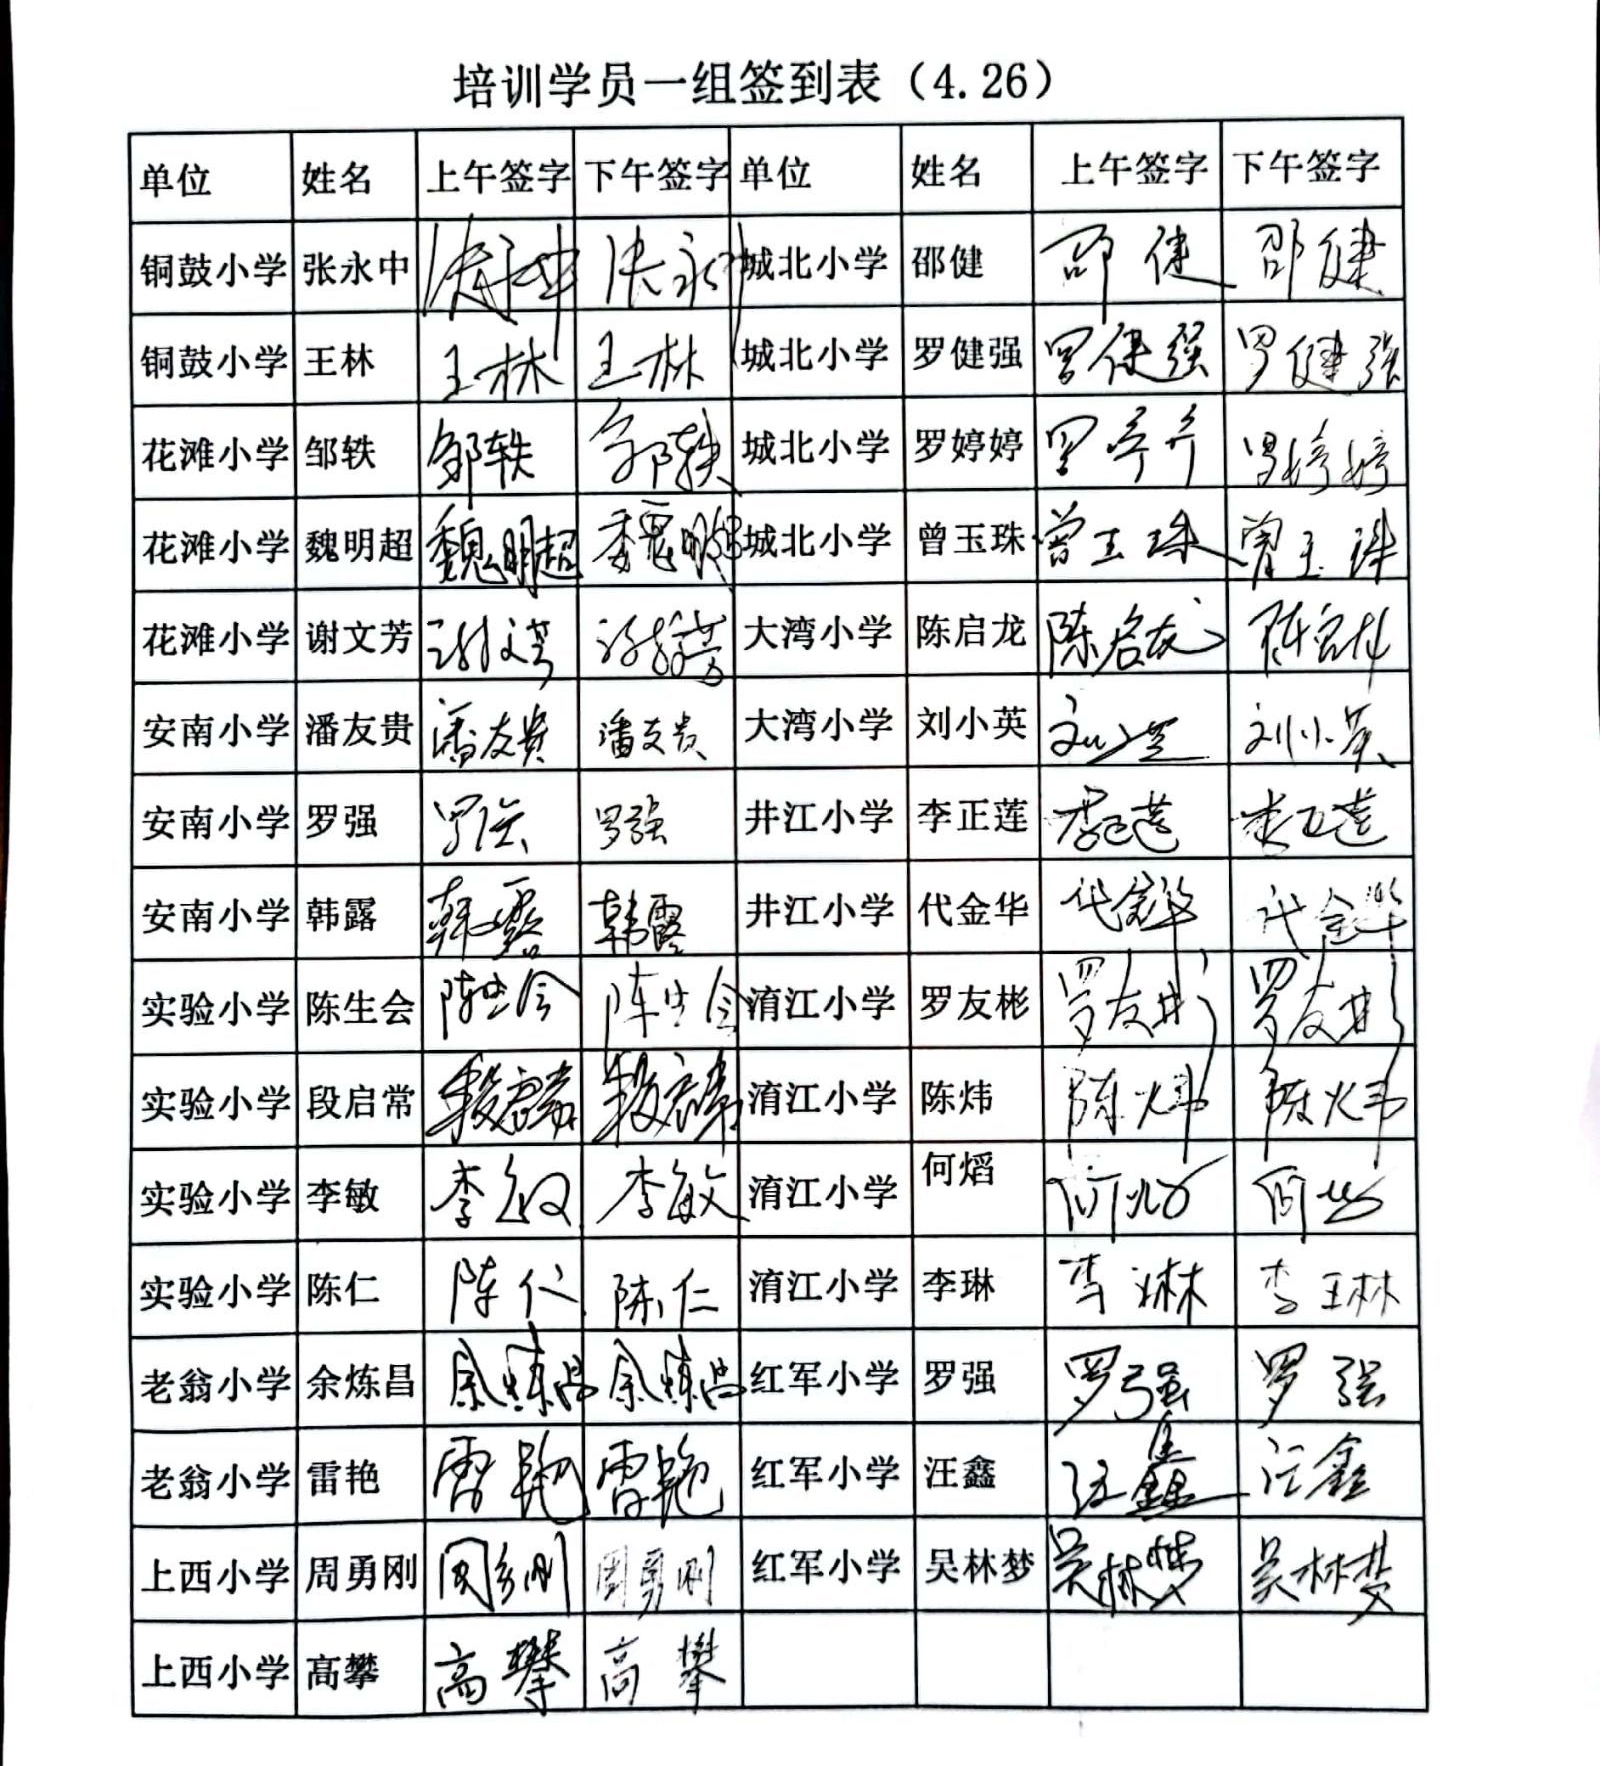 培训学员一组签到表（4.26）
单位 姓名 上午签字 下午签字 单位 姓名 上午签字 下午签字
铜鼓小学 张永中 张永中 张永中 城北小学 邵健 邵健 邵健
铜鼓小学 王林 王林 王林 城北小学 罗健强 罗健强 罗健强
花滩小学 邹轶 邹轶 邹轶 城北小学 罗婷婷 罗婷婷 罗婷婷
花滩小学 魏明超 魏明超 魏明超 城北小学 曾玉珠 曾玉珠 曾玉珠
花滩小学 谢文芳 谢文芳 谢文芳 大湾小学 陈启龙 陈启龙 陈启龙
安南小学 潘友贵 潘友贵 潘友贵 大湾小学 刘小英 刘小英 刘小英
安南小学 罗强 罗强 罗强 井江小学 李正莲 李正莲 李正莲
安南小学 韩露 韩露 韩露 井江小学 代金华 代金华 代金华
实验小学 陈生会 陈生会 陈生会 淯江小学 罗友彬 罗友彬 罗友彬
实验小学 段启常 段启常 段启常 淯江小学 陈炜 陈炜 陈炜
实验小学 李敏 李敏 李敏 淯江小学 何熖 何熖 何熖
实验小学 陈仁 陈仁 陈仁 淯江小学 李琳 李琳 李琳
老翁小学 余炼昌 余炼昌 余炼昌 红军小学 罗强 罗强 罗强
老翁小学 雷艳 雷艳 雷艳 红军小学 汪鑫 汪鑫 汪鑫
上西小学 周勇刚 周勇刚 周勇刚 红军小学 吴林梦 吴林梦 吴林梦
上西小学 高攀 高攀 高攀